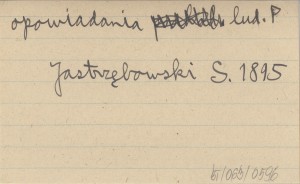 opowiadania lud. P
Jastrzębowski S. 1895